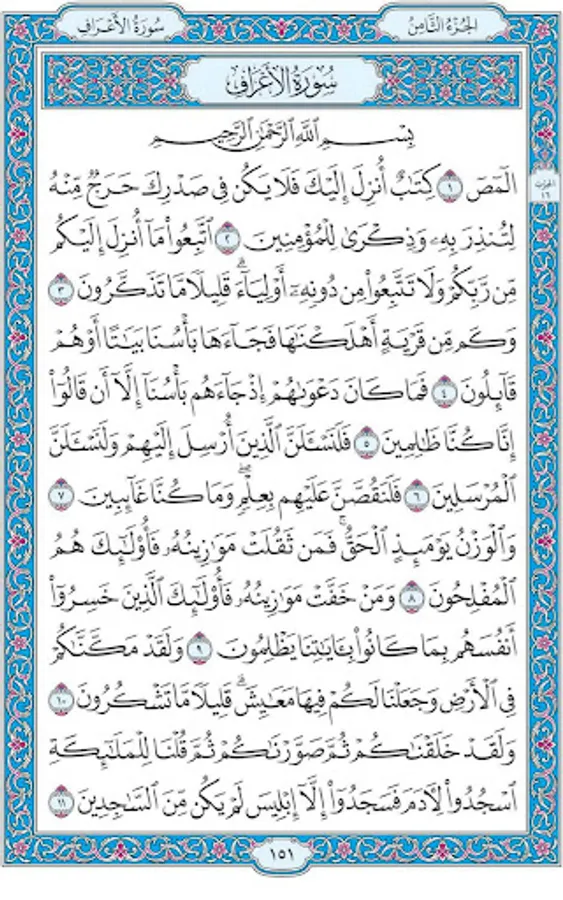 الجُزْءُ الثَّامِنُ
سُورَةُ الأَعْرَافِ
سُورَةُ الأَعْرَافِ
بِسْمِ اللَّهِ الرَّحْمَٰنِ الرَّحِيمِ
الٓمٓصٓ ١ كِتَٰبٌ أُنزِلَ إِلَيْكَ فَلَا يَكُن فِي صَدْرِكَ حَرَجٌ مِّنْهُ
لِتُنذِرَ بِهِۦ وَذِكْرَىٰ لِلْمُؤْمِنِينَ ٢ ٱتَّبِعُوا۟ مَآ أُنزِلَ إِلَيْكُم
مِّن رَّبِّكُمْ وَلَا تَتَّبِعُوا۟ مِن دُونِهِۦٓ أَوْلِيَآءَۗ قَلِيلًا مَّا تَذَكَّرُونَ ٣
وَكَم مِّن قَرْيَةٍ أَهْلَكْنَٰهَا فَجَآءَهَا بَأْسُنَا بَيَٰتًا أَوْ هُمْ
قَآئِلُونَ ٤ فَمَا كَانَ دَعْوَىٰهُمْ إِذْ جَآءَهُم بَأْسُنَآ إِلَّآ أَن قَالُوٓا۟
إِنَّا كُنَّا ظَٰلِمِينَ ٥ فَلَنَسْـَٔلَنَّ ٱلَّذِينَ أُرْسِلَ إِلَيْهِمْ وَلَنَسْـَٔلَنَّ
ٱلْمُرْسَلِينَ ٦ فَلَنَقُصَّنَّ عَلَيْهِم بِعِلْمٍۖ وَمَا كُنَّا غَآئِبِينَ ٧
وَٱلْوَزْنُ يَوْمَئِذٍ ٱلْحَقُّۚ فَمَن ثَقُلَتْ مَوَٰزِينُهُۥ فَأُو۟لَٰٓئِكَ هُمُ
ٱلْمُفْلِحُونَ ٨ وَمَنْ خَفَّتْ مَوَٰزِينُهُۥ فَأُو۟لَٰٓئِكَ ٱلَّذِينَ خَسِرُوٓا۟
أَنفُسَهُم بِمَا كَانُوا۟ بِـَٔايَٰتِنَا يَظْلِمُونَ ٩ وَلَقَدْ مَكَّنَّٰكُمْ
فِي ٱلْأَرْضِ وَجَعَلْنَا لَكُمْ فِيهَا مَعَٰيِشَۗ قَلِيلًا مَّا تَشْكُرُونَ ١٠
وَلَقَدْ خَلَقْنَٰكُمْ ثُمَّ صَوَّرْنَٰكُمْ ثُمَّ قُلْنَا لِلْمَلَٰٓئِكَةِ
ٱسْجُدُوا۟ لِـَٔادَمَ فَسَجَدُوٓا۟ إِلَّآ إِبْلِيسَ لَمْ يَكُن مِّنَ ٱلسَّٰجِدِينَ ١١
١٥١